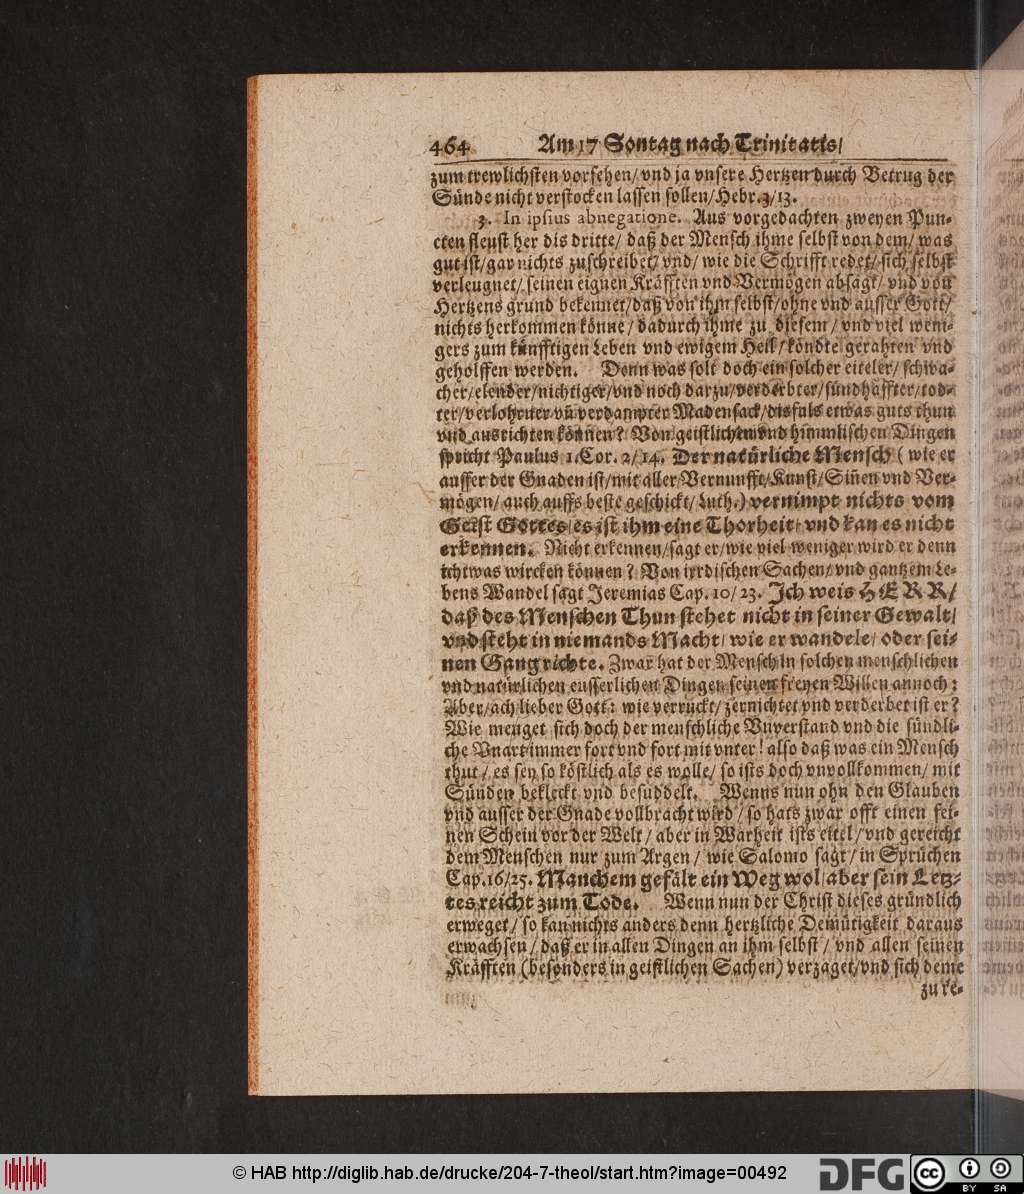 464 Am 17 Sontag nach Trinitatis/
zum trewlichsten vorsehen/ vnd ja vnsere Hertzen durch Betrug der
Sünde nicht verstocken lassen sollen/ Hebr. 3/13.
3. In ipsius abnegatione. Aus vorgedachten zweyen Pun-
cten fleust her dis dritte/ daß der Mensch ihme selbst von dem/ was
gut ist/ gar nichts zuschreibet/ vnd/ wie die Schrifft redet/ sich selbst
verleugnet/ seinen eignen Kräfften vnd Vermögen absagt/ vnd von
Hertzens grund bekennet/ daß von ihm selbst/ ohne vnd ausser Gott/
nichts herkommen könne/ dadurch ihme zu diesem/ vnd viel weni-
gers zum künfftigen Leben vnd ewigem Heil/ köndte gerahten vnd
geholffen werden. Denn was solt doch ein solcher eiteler/ schwa-
cher/ elender/ nichtiger/ vnd noch darzu/ verderbter/ sündhaffter/ tod-
ter/ verlohrner vn̄ verdampter Madensack/ disfals etwas guts thun
vnd ausrichten können? Von geistlichen vnd himmlischen Dingen
spricht Paulus 1. Cor. 2/14. Der natürliche Mensch (wie er
ausser der Gnaden ist/ mit aller Vernunfft/ Kunst/ Sin̄en vnd Ver-
mögen/ auch auffs beste geschickt/ Luth.) vernimpt nichts vom
Geist Gottes/ es ist ihm eine Thorheit/ vnd kan es nicht
erkennen. Nicht erkennen/ sagt er/ wie viel weniger wird er denn
ichtwas wircken können? Von irrdischen Sachen/ vnd gantzem Le-
bens Wandel sagt Jeremias Cap. 10/23. Ich weis HERR/
daß des Menschen Thun stehet nicht in seiner Gewalt/
vnd steht in niemands Macht/ wie er wandele/ oder sei-
nen Gang richte. Zwar hat der Mensch in solchen menschlichen
vnd natürlichen eusserlichen Dingen seinen freyen Willen annoch;
Aber/ ach lieber Gott: wie verruckt/ zernichtet vnd verderbet ist er?
Wie menget sich doch der menschliche Vnverstand vnd die sündli-
che Vnart immer fort vnd fort mit vnter! also daß was ein Mensch
thut/ es sey so köstlich als es wolle/ so ists doch vnvollkommen/ mit
Sünden bekleckt vnd besuddelt. Wenns nun ohn den Glauben
vnd ausser der Gnade vollbracht wird/ so hats zwar offt einen fei-
nen Schein vor der Welt/ aber in Warheit ists eitel/ vnd gereicht
dem Menschen nur zum Argen/ wie Salomo sagt/ in Sprüchen
Cap. 16/25. Manchem gefält ein Weg wol/ aber sein Letz-
tes reicht zum Tode. Wenn nun der Christ dieses gründlich
erweget/ so kan nichts anders denn hertzliche Demütigkeit daraus
erwachsen/ daß er in allen Dingen an ihm selbst/ vnd allen seinen
Kräfften (besonders in geistlichen Sachen) verzaget/ vnd sich deme
zu re-
© HAB http://diglib.hab.de/drucke/204-7-theol/start.htm?image=00492
DFG
cc BY SA